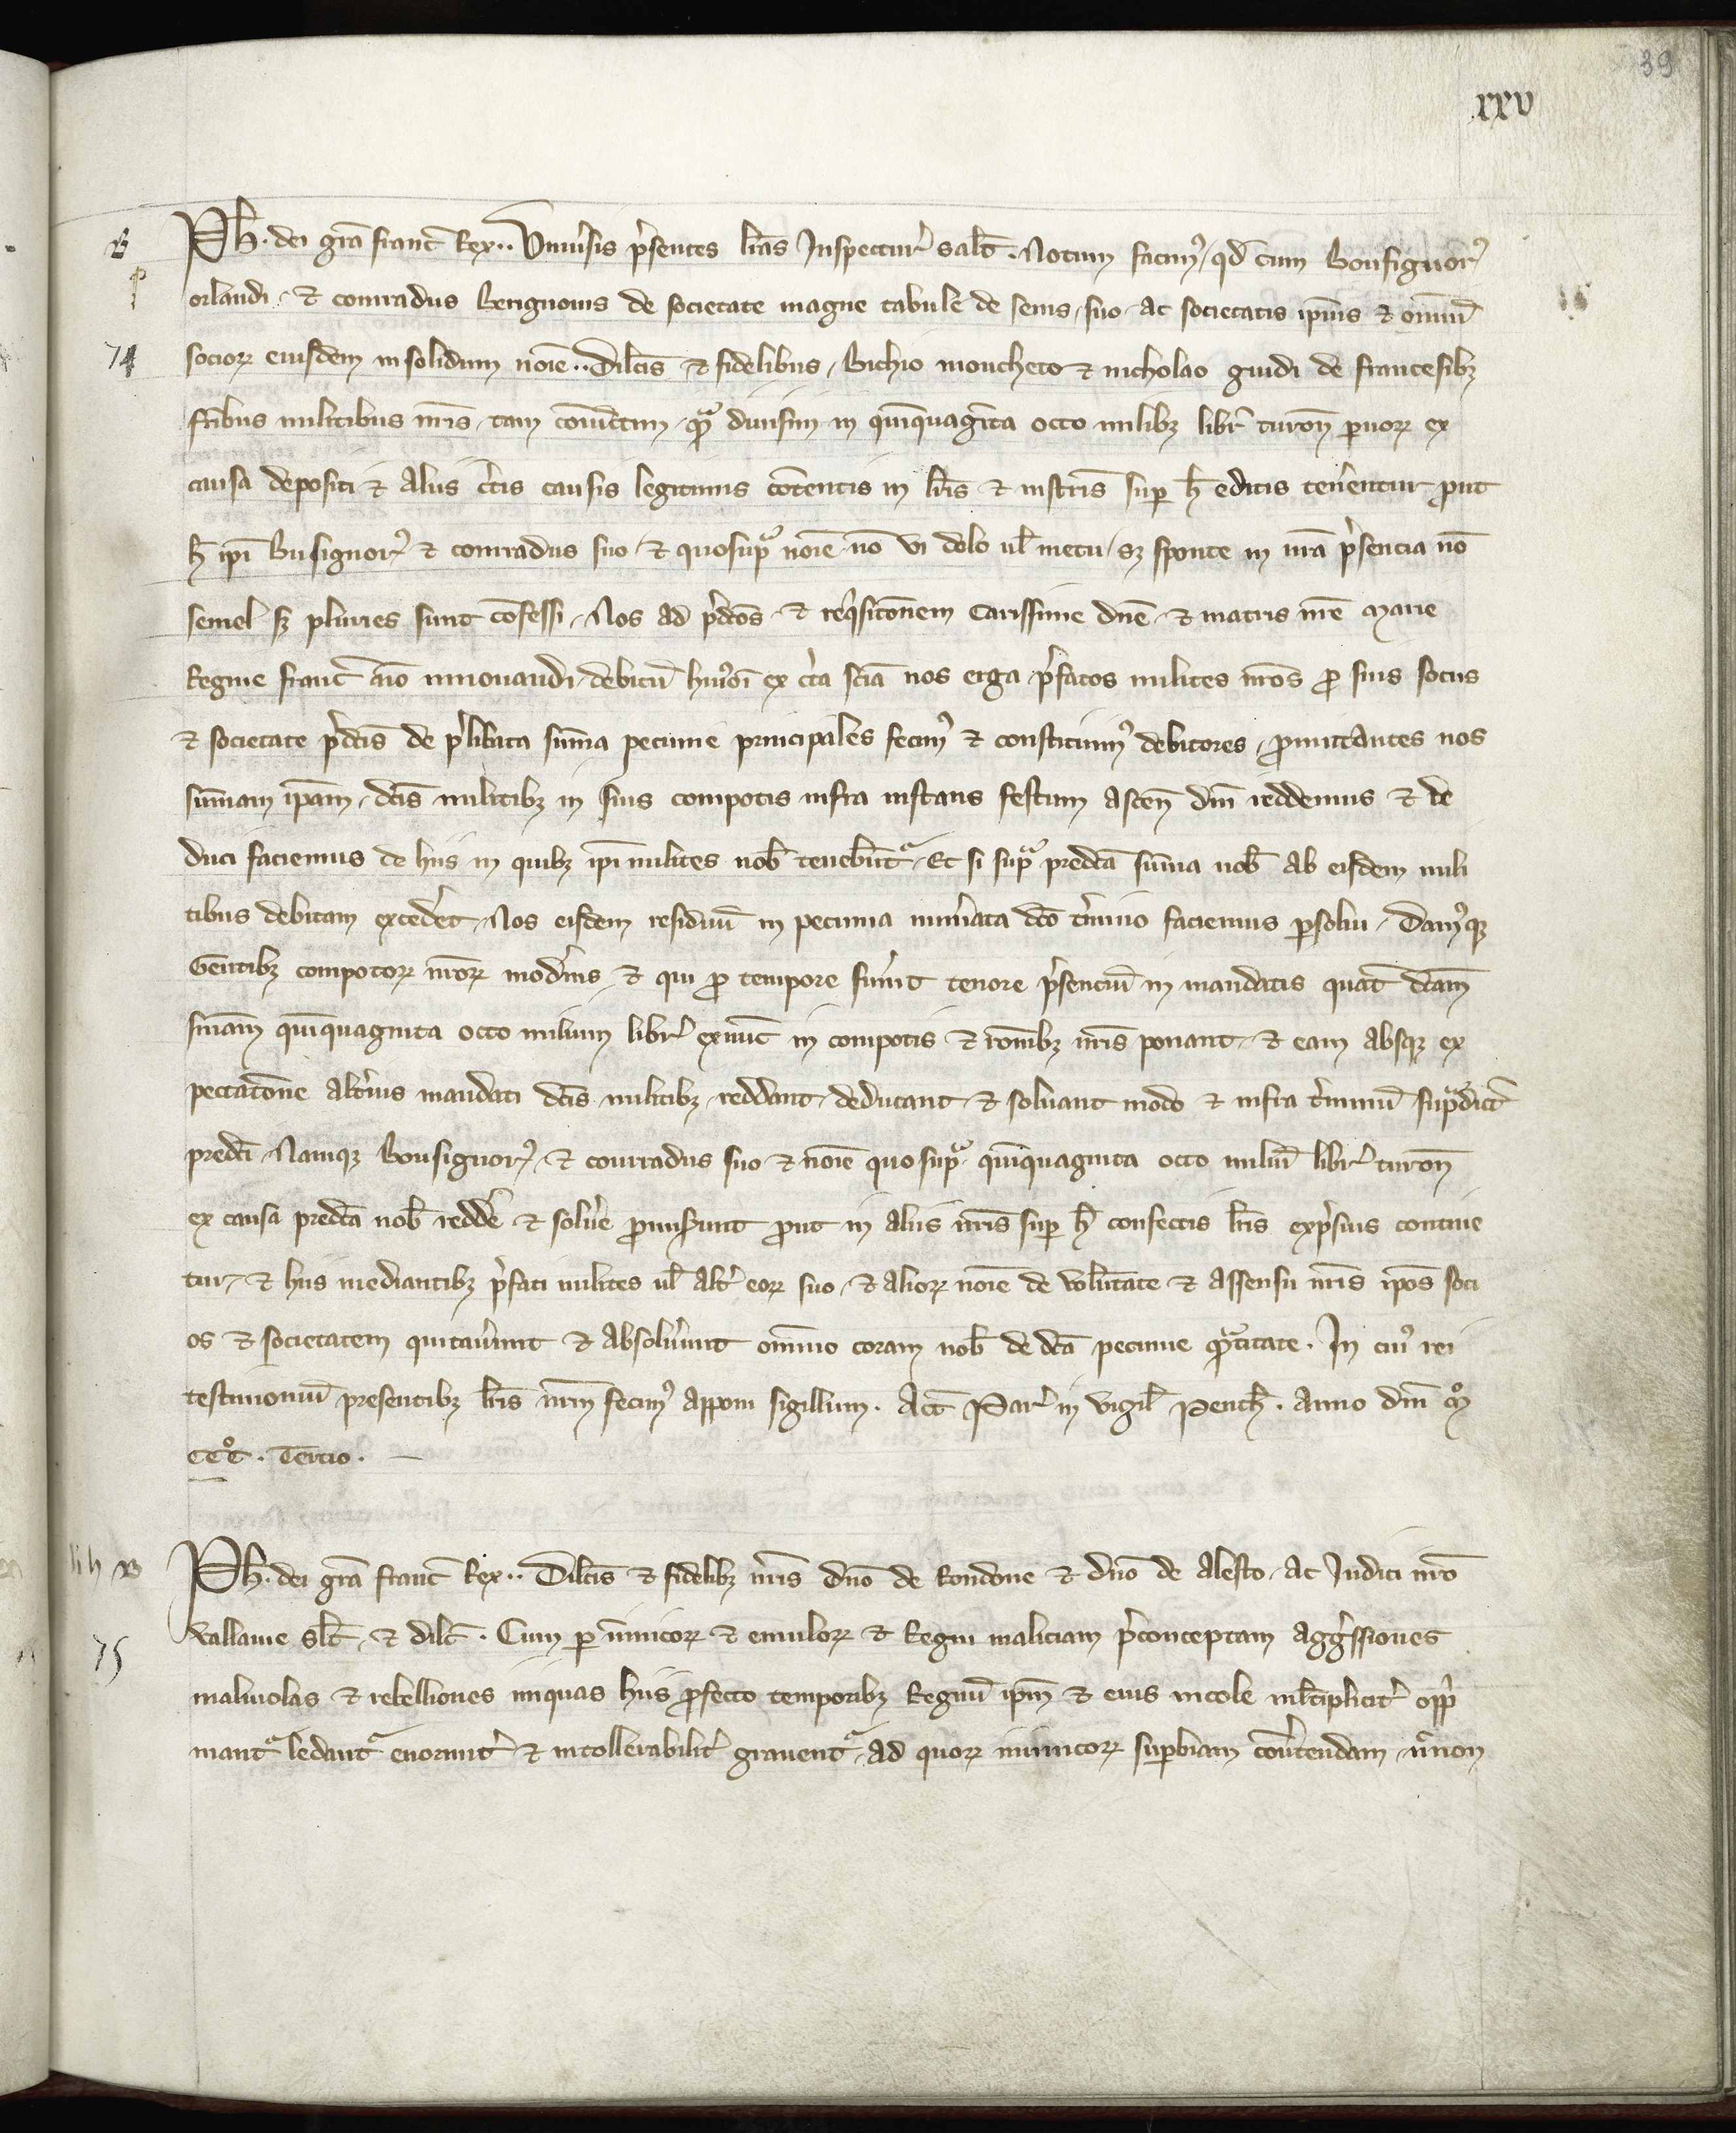 39
xxv
Ph̄. dei gr̄a franc̄ Rex.. Vniu̾sis p̾sentes lr̄as Inspectur̾ salt̄. Notum facim⁹, qd̄ cum Bonsignor⁹
orlandi, et conradus Benignonis de societate magne tabule de senis, suo ac societatis ip̄ius et om̄iū
74 socioꝝ eiusdem insolidum noīe.. Dilc̄is et fidelibus, Bichio moucheto et nicholao guidi de francesibꝫ
fr̄ibus militibus nr̄is, tam coniūctim qᷓ diuisim in quinquagīta octo milibꝫ libr̾ turon̄ paruoꝝ ex
causa depositi et aliis c̾tis causis legitimis cōtentis in lr̄is et instr̄is sup̱ h̄ editis tener̄entur ꝓut
h̄ ip̄i Busignor⁹ et conradus suo et quosupᷓ noīe nō vi dolo ul̄ metu, sꝫ sponte in nr̄a p̾sencia nō
semel sꝫ pluries sunt cōfessi, Nos ad p̾dc̄os, et req̾sitōnem Carissime dn̄e et matris nr̄e Marie
Regine franc̄ aīo innouandi debitū hui⁹oī ex c̾ta sciā nos erga p̾fatos milites nr̄os ꝓ suis sociis
et societate p̾dc̄is de p̾libata sum̄a pecunie principales fecim⁹ et constituim⁹ debitores, ꝓmittantes nos
sum̄am ip̄am, dc̄is militibꝫ in suis compotis infra instans festum ascen̄ dn̄i reddemus et de
duci faciemus de hiis in quibꝫ ip̄i milites nob̄ tenebūtᷓ. Et si supᷓ predc̄ā sum̄a nob̄ ab eisdem mili
tibus debitam exceder̄et, Nos eisdem residuū in pecunia num̾ata dc̄o t̾mino faciemus ꝑsolui, Dam⁹qꝫ
Gentibꝫ compotoꝝ nr̄oꝝ mod̾nis, et qui ꝓ tempore fu̾int tenore p̾senciū in mandatis quat̄ dc̄am
sum̄am quinquaginta octo milium libr̾ exnūc in compotis et rōnibꝫ nr̄is ponant, et eam absqꝫ ex
pectatōne alt̾ius mandati dc̄is militibꝫ reddant, deducant et soluant modo et infra t̾minū supᷓdict̾
predc̄i, Namqꝫ Bonsignor⁹, et conradus suo et noīe quo supᷓ quinquaginta octo miliū libr̾ turon̄
ex causa predc̄a nob̄ redde̾ et solu̾e ꝓmiserunt ꝓut in aliis nr̄is sup̱ h̄ confectis lr̄is exp̾sius contine
tur, et hiis mediantibꝫ p̾fati milites ul̄ alt̾ eoꝝ suo, et alioꝝ noīe de volūtate et assensu nr̄is ip̄os soci
os et societatem quitau̾unt et absolu̾unt omnino coram nob̄ de dc̄a pecunie qᷓntitate. In cui⁹ rei
testimoniū presentibꝫ lr̄is nr̄m fecim⁹ apponi sigillum. Act̄ Par̾ in vigil̄ Penth̄. Anno dn̄i Mº
CCCº. Tercio.
Ph̄. dei gr̄a franc̄ Rex.. Dilc̄is et fidelibꝫ nr̄is dn̄o de Rondone et dn̄o de Alesto, ac Judici nr̄o
75 vallauie sl̄t, et dil̄c. Cum ꝑ inimicoꝝ et emuloꝝ et Regni maliciam p̾conceptam aggr̾ssiones
maliuolas et rebelliones iniquas hiis ꝓfecto temporibꝫ Regnū ip̄m et eius incole ml̄tiplicit̾ opp̾
mantᷓ ledantᷓ enormit̾ et intollerabilit̾ grauentᷓ, Ad quoꝝ inimicoꝝ suꝑbiam cōt̾endam, n̾non